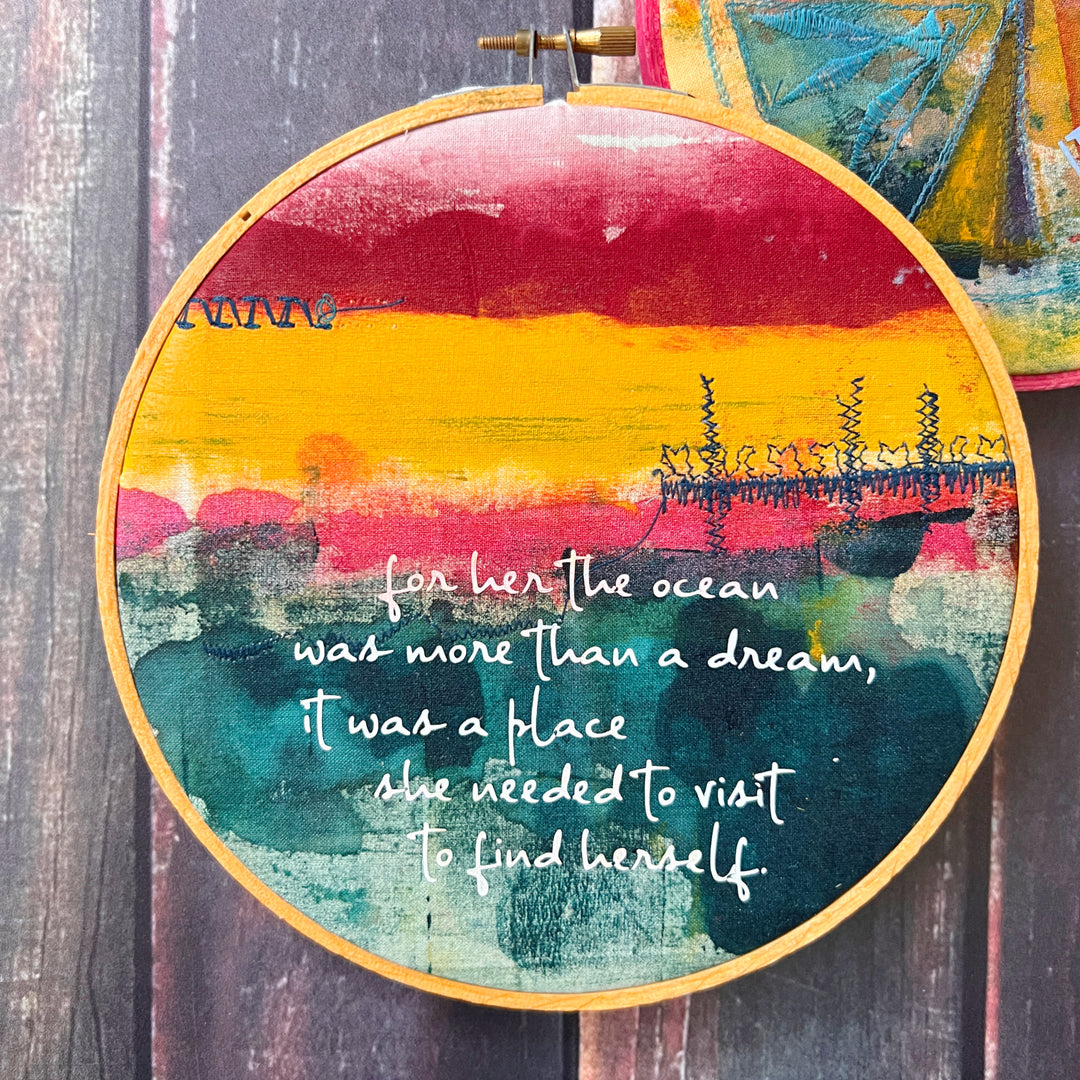 for her the ocean
was more than a dream,
it was a place
she needed to visit
to find herself.